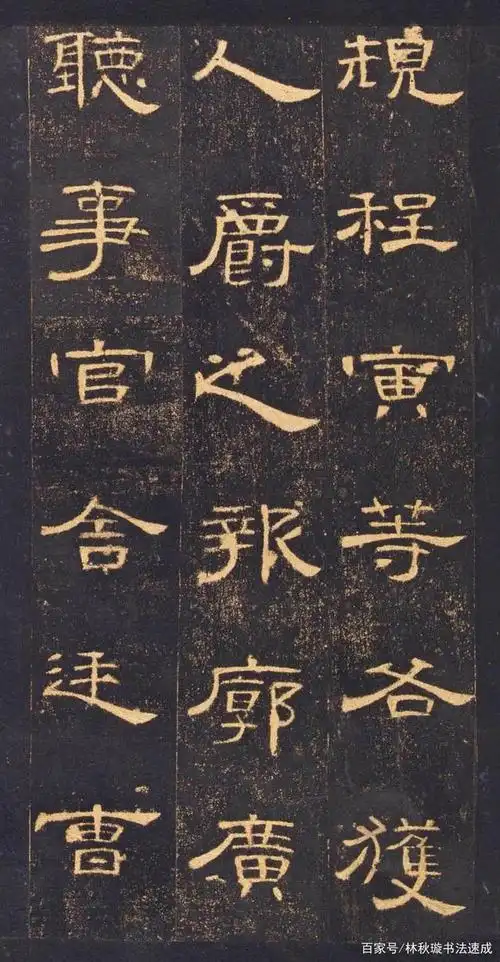 規程寅等各獲
人爵之報廓廣
聽事官舍廷曹
百家号/林秋璇书法速成